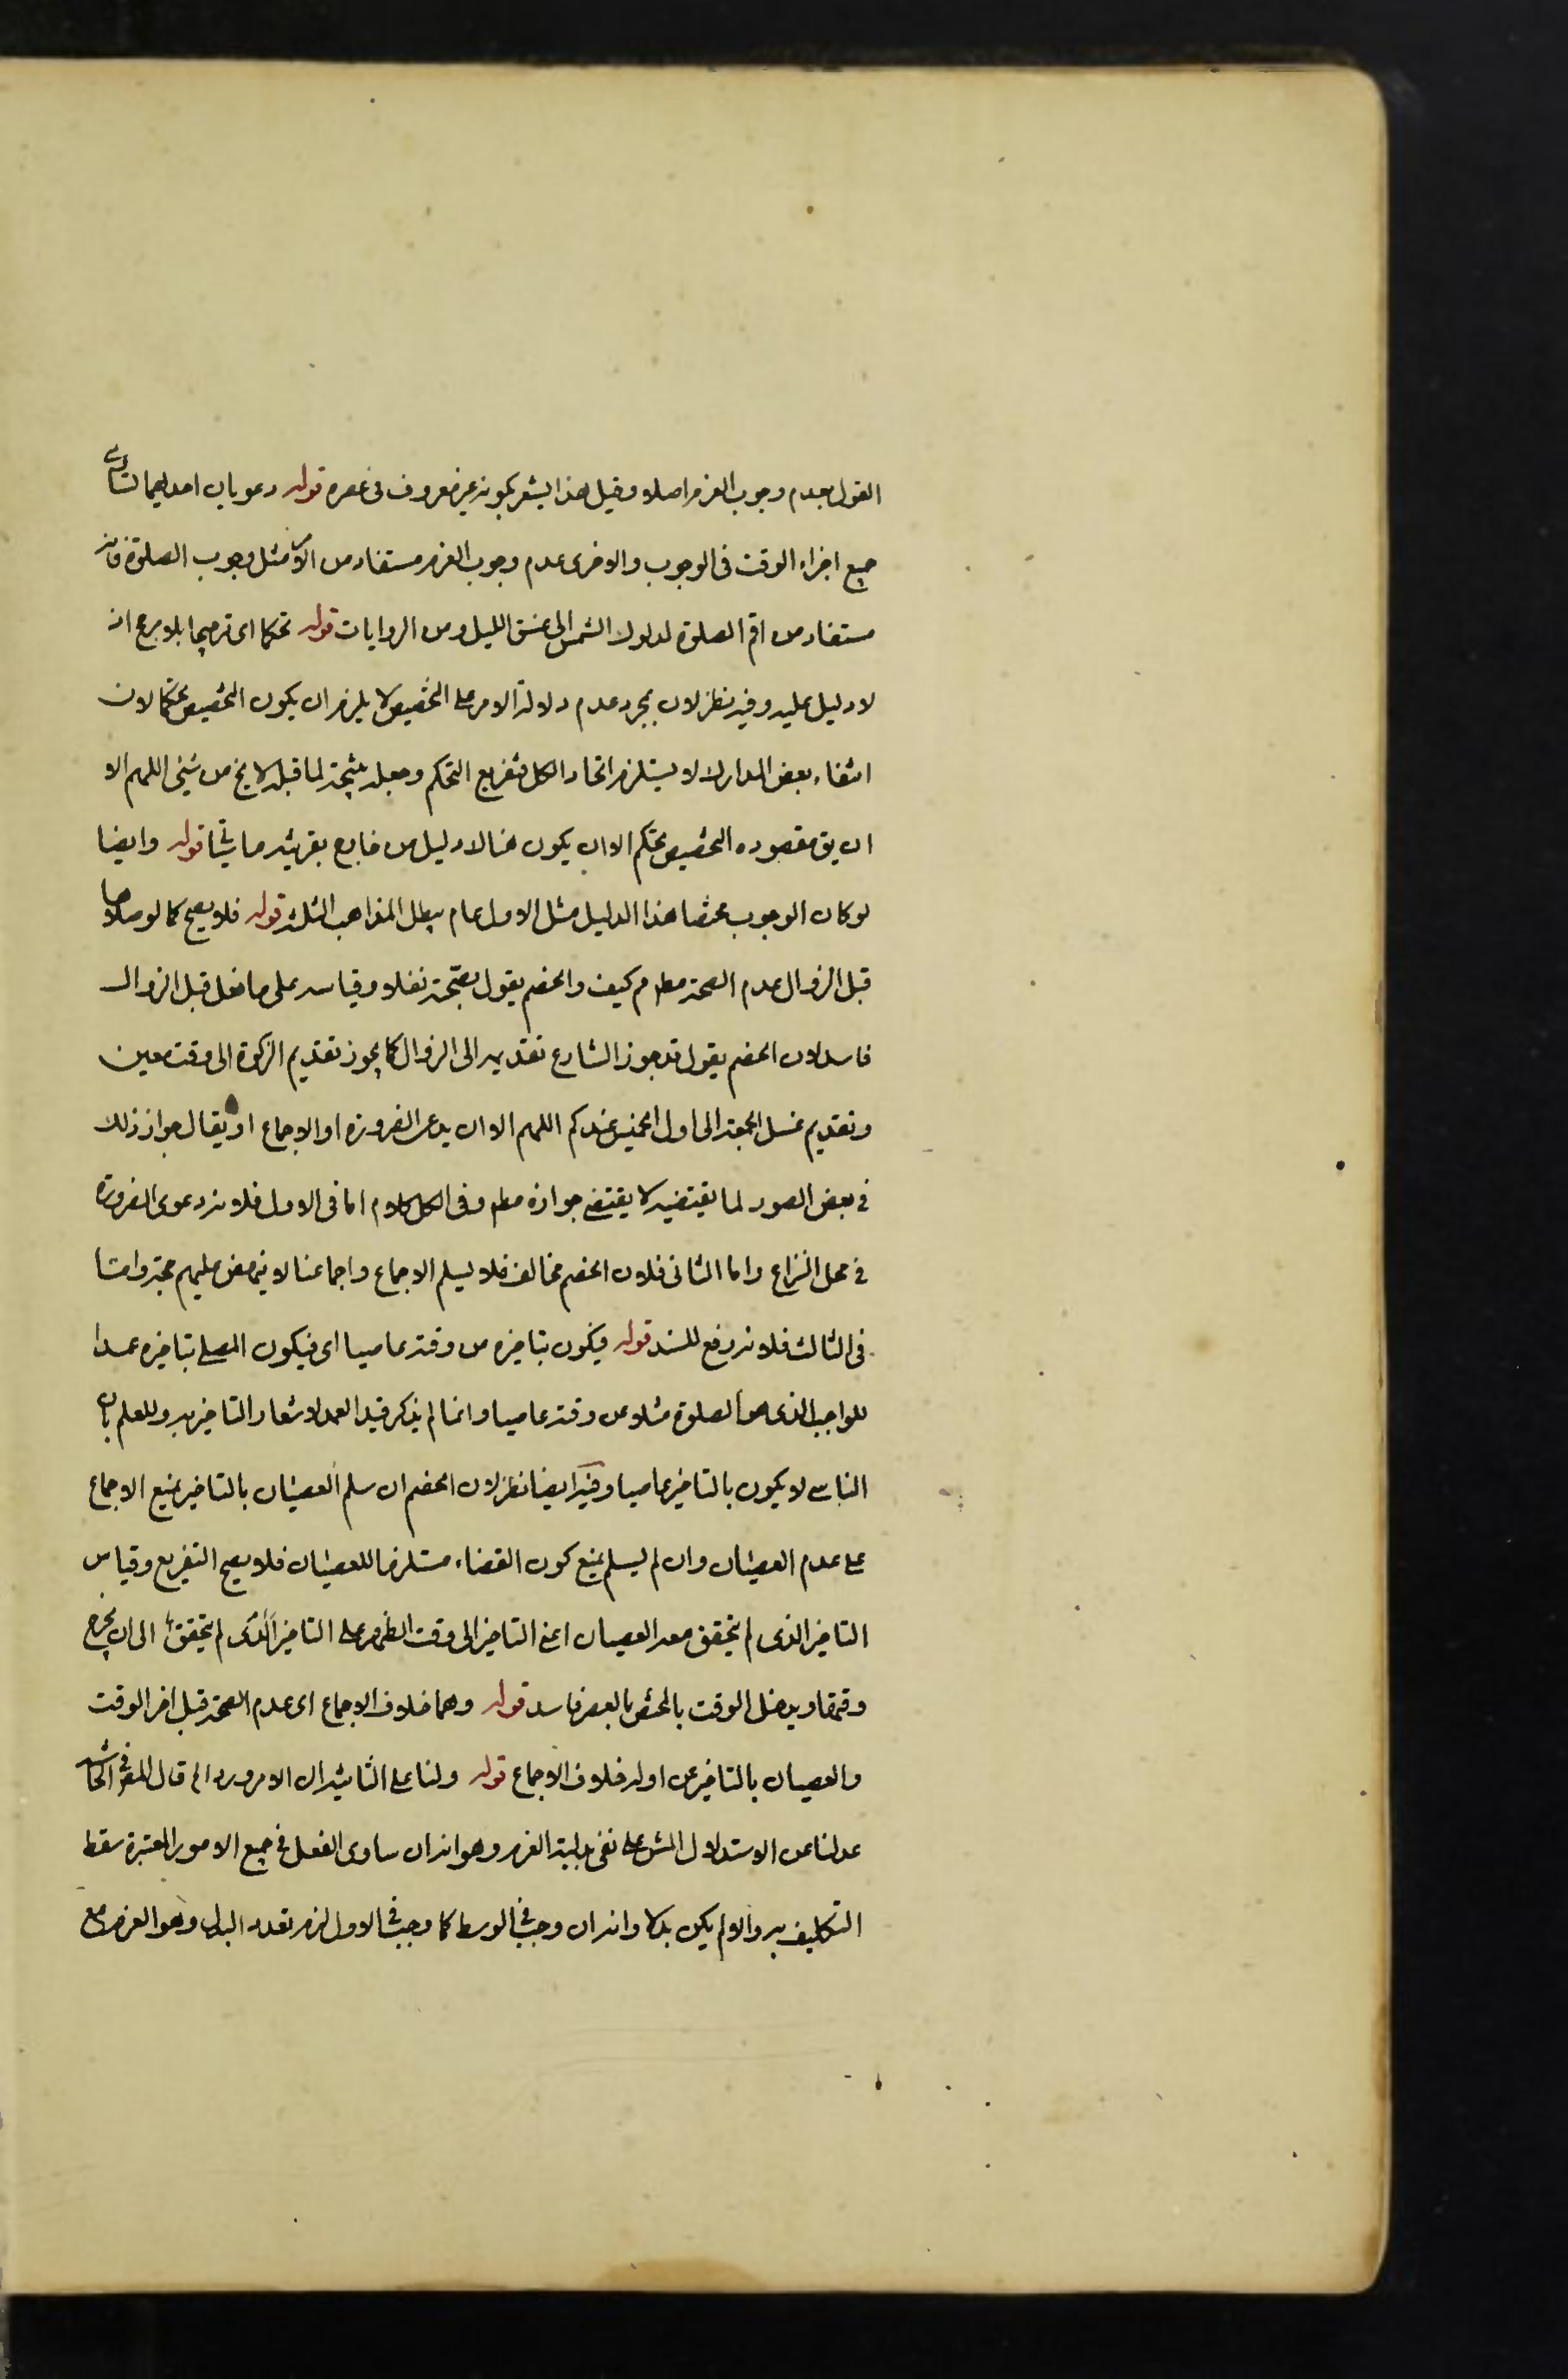 القول بعدم وجوب العزم اصلا وقيل هذا يشعر بكونه غير معروف فى عصره قوله دعويان احديهما تساوى
جميع اجزاء الوقت فى الوجوب والاخرى عدم وجوب العزم مستفاد من الامر مثل وجوب الصلوة فانه
مستفاد من اقم الصلوة لدلوك الشمس الى غسق الليل ومن الروايات قوله تحكما اى ترجيحا بلا مرجح اذ
لا دليل عليه وفيه نظر لان بمجرد عدم دلالة الامر على التخصيص لا يلزم ان يكون التخصيص تحكما لان
انتفاء بعض المدارك لا يستلزم انتفاء الكل فتفريع التحكم وجعله نتيجة لما قبله لا يخ من شئ اللهم الا
ان يق مقصوده التخصيص تحكم الا ان يكون هناك دليل من خارج بقرينة ما ياتى قوله وايضا
لو كان الوجوب مختصا هذا الدليل مثل الاول عام يبطل المذاهب الثلثة قوله فلا يصح كما لو صلاها
قبل الزوال عدم الصحة مطم م كيف والخصم يقول بصحته نفلا وقياسه على ما فعل قبل الزوال
فاسد لان الخصم يقول قد جوز الشارع تقديمه الى الزوال كما يجوز تقديم الزكوة الى وقت معين
وتقديم غسل الجمعة الى اول الخميس عندكم اللهم الا ان يدعى الضرورة او الاجماع او يقال جواز ذلك
فى بعض الصور لما يقتضيه لا يقتضى جوازه مطم وفى الكل كلام اما فى الاول فلانه دعوى الضرورة
فى محل النزاع واما الثانى فلان الخصم مخالف فلا يسلم الاجماع واجماعنا لا ينهض عليهم حجة واما
فى الثالث فلانه دفع للسند قوله فيكون بتاخيره من وقته عاصيا اى فيكون المصلى بتاخيره عمدا
للواجب الذى هو الصلوة مثلا عن وقته عاصيا وانما لم يذكر قيد العمد لاشعار التاخير به وللعلم بان
الناسى لا يكون بالتاخير عاصيا وفيه ايضا نظر لان الخصم ان سلم العصيان بالتاخير يمنع الاجماع
على عدم العصيان وان لم يسلم يمنع كون القضاء مستلزما للعصيان فلا يصح التفريع وقياس
التاخير الذى لم يتحقق معه العصيان اعنى التاخير الى وقت الظهر على التاخير الذى لم يتحقق الى ان يخرج
وقتها ويدخل الوقت بالمختص بالعصر فاسد قوله وهما خلاف الاجماع اى عدم الصحة قبل اخر الوقت
والعصيان بالتاخير عن اوله خلاف الاجماع قوله ولنا على الثانية ان الامر ورد الخ قال المص فى الحاشية
عدلنا عن الاستدلال المش على نفى بدلية العزم وهو انه ان ساوى الفعل فى جميع الامور المعتبرة سقط
التكليف به والا لم يكن بدلا وانه ان وجب فى الوسط كما وجب فى الاول لزم تعدد البدل وهو العزم مع